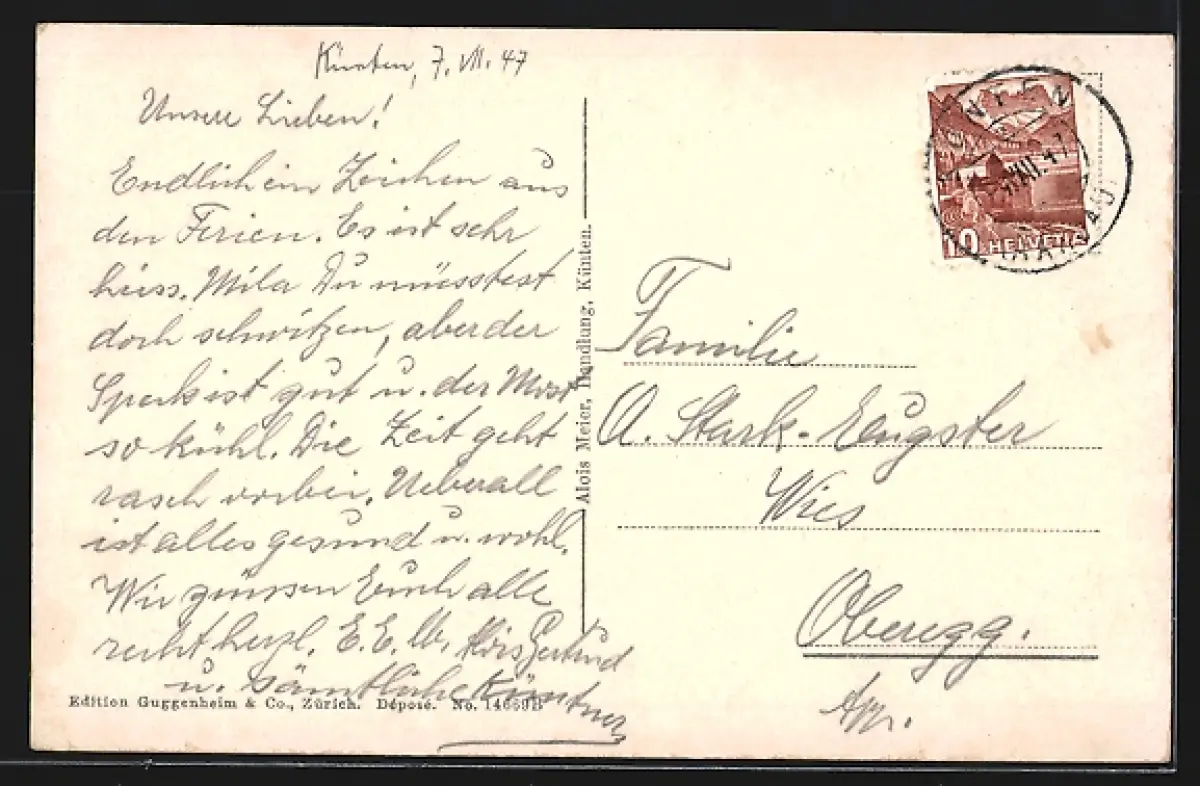 Künten, 7. VII. 47
Unsere Lieben!
Endlich ein Zeichen aus
den Ferien. Es ist sehr
heiss. Mila Du müsstest
doch schwitzen, aber der
Speck ist gut u. der Most
so kühl. Die Zeit geht
rasch vorbei. Ueberall
ist alles gesund u. wohl.
Wir grüssen Euch alle
recht herzl. E. E. lb. Alois Gertrud
u. sämtliche Küntner
Edition Guggenheim & Co., Zürich. Déposé. No. 14669B
Alois Meier, Handlung, Künten.
HELVETIA
10
Familie
A. Stark-Eugster
Wies
Oberegg.
App.